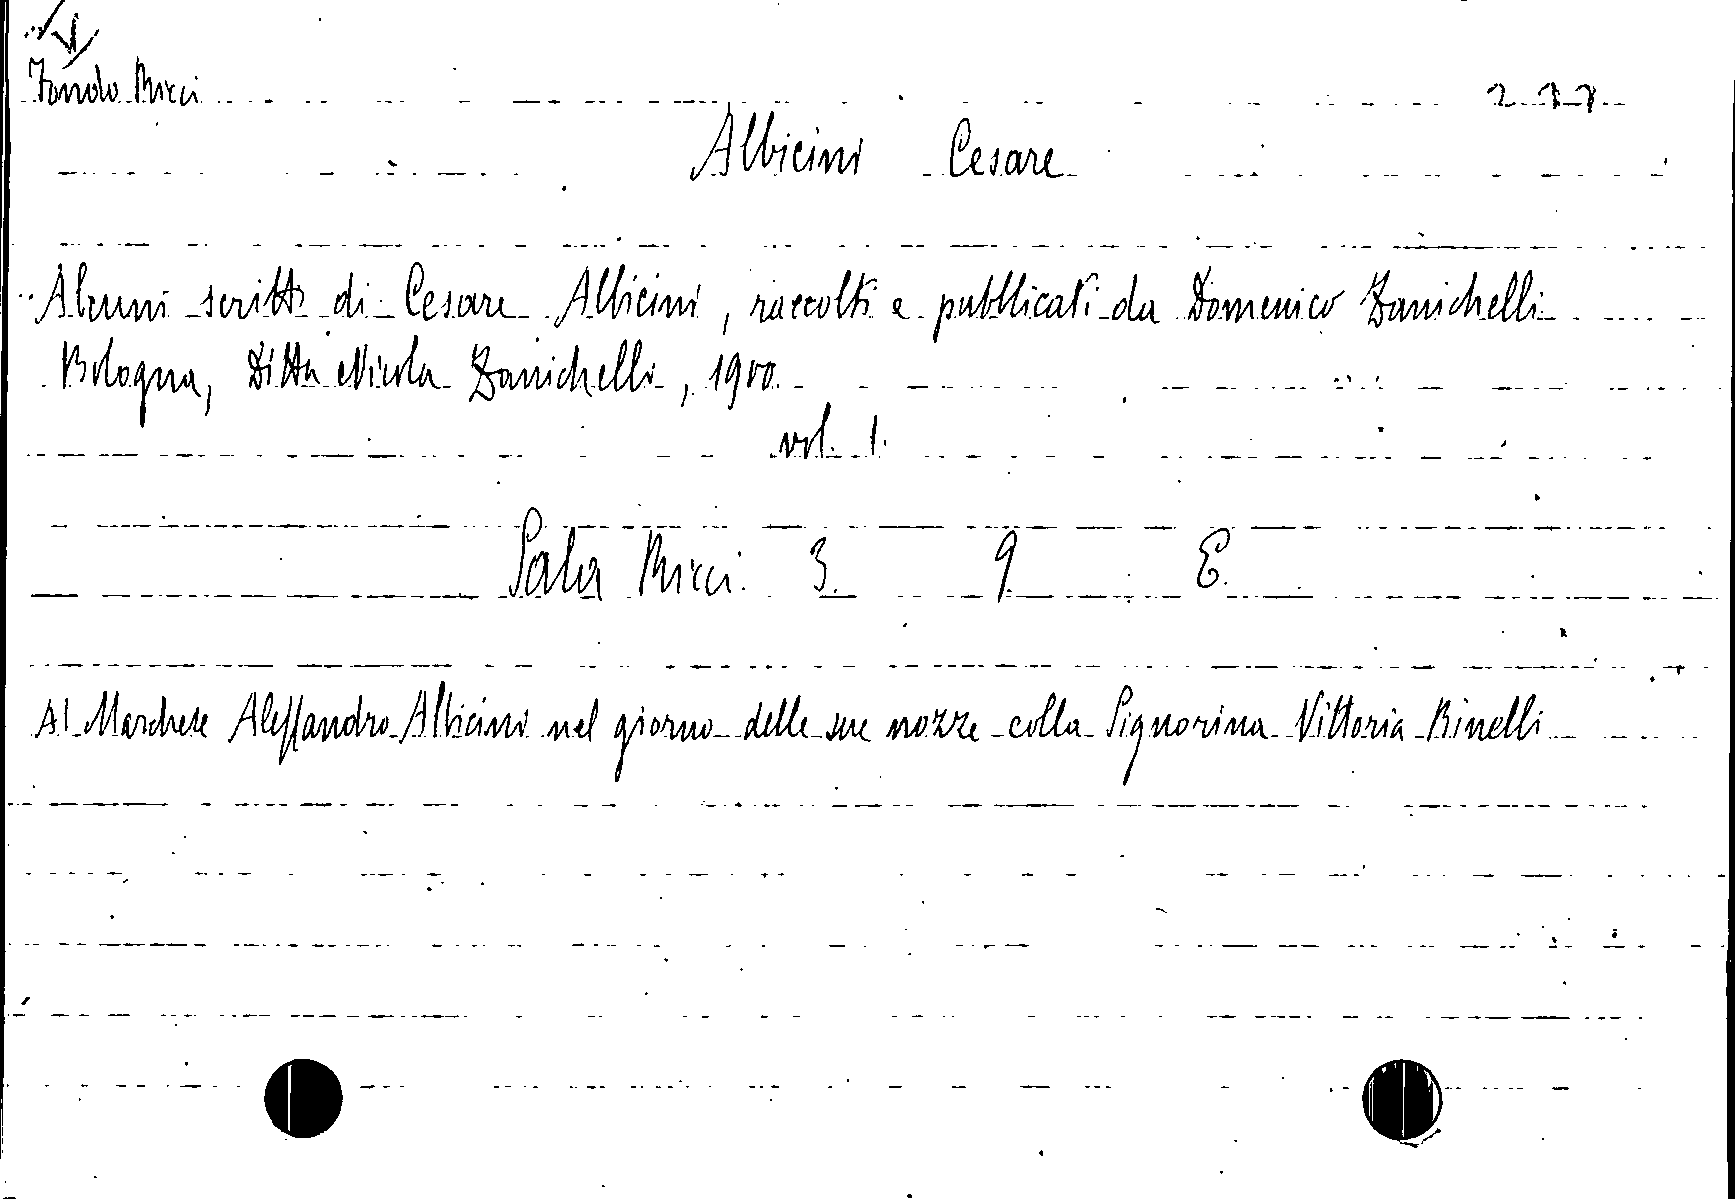 Fondo Ricci
Albicini Cesare
Alcuni scritti di Cesare Albicini, raccolti e pubblicati da Domenico Zanichelli
Bologna, Ditta Nicola Zanichelli, 1900.
vol. 1.
Sala Ricci 3. 9. E.
Al Marchese Alessandro Albicini nel giorno delle sue nozze colla Signorina Vittoria Binelli